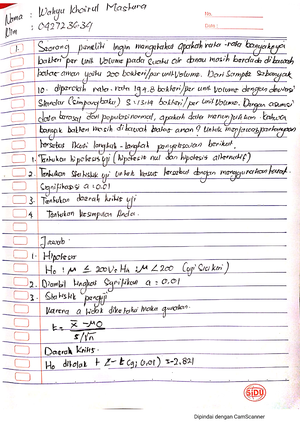 Nama : Wahyu Khoirul Mastura
Nim : 042723634
No.
Date:
1. Seorang peneliti ingin mengetahui apakah rata-rata banyaknya
bakteri per unit Volume pada suatu air danau masih berada di bawah
batas aman yaitu 200 bakteri/per unit Volume. Dari sampel sebanyak
10 diperoleh rata-rata 194.8 bakteri/per unit Volume dengan deviasi
Standar (Simpang baku) S: 13.14 bakteri/per unit Volume. Dengan asumsi
data berasal dari populasi normal, apakah data menunjukkan bahwa
banyak bakteri masih di bawah batas aman? Untuk menjawab pertanyaan
tersebut ikuti langkah-langkah penyelesaian berikut.
1. Tentukan hipotesis uji (hipotesis nol dan hipotesis alternatif)
2. Tentukan statistik uji untuk kasus tersebut dengan menggunakan taraf
Signifikansi α = 0.01
3. Tentukan daerah kritis uji
4. Tentukan kesimpulan Anda.
Jawab
1. Hipotesis
H0 : μ ≤ 200 Vs Ha : μ < 200 (uji Satu kiri)
2. Diambil tingkat Signifikan α = 0.01
3. Statistik penguji
Karena σ tidak diketahui maka gunakan.
t = x̄ - μ0
s/√n
Daerah Kritis.
H0 ditolak t ≤ - t (9; 0.01) = -2.821
SIDU
Dipindai dengan CamScanner